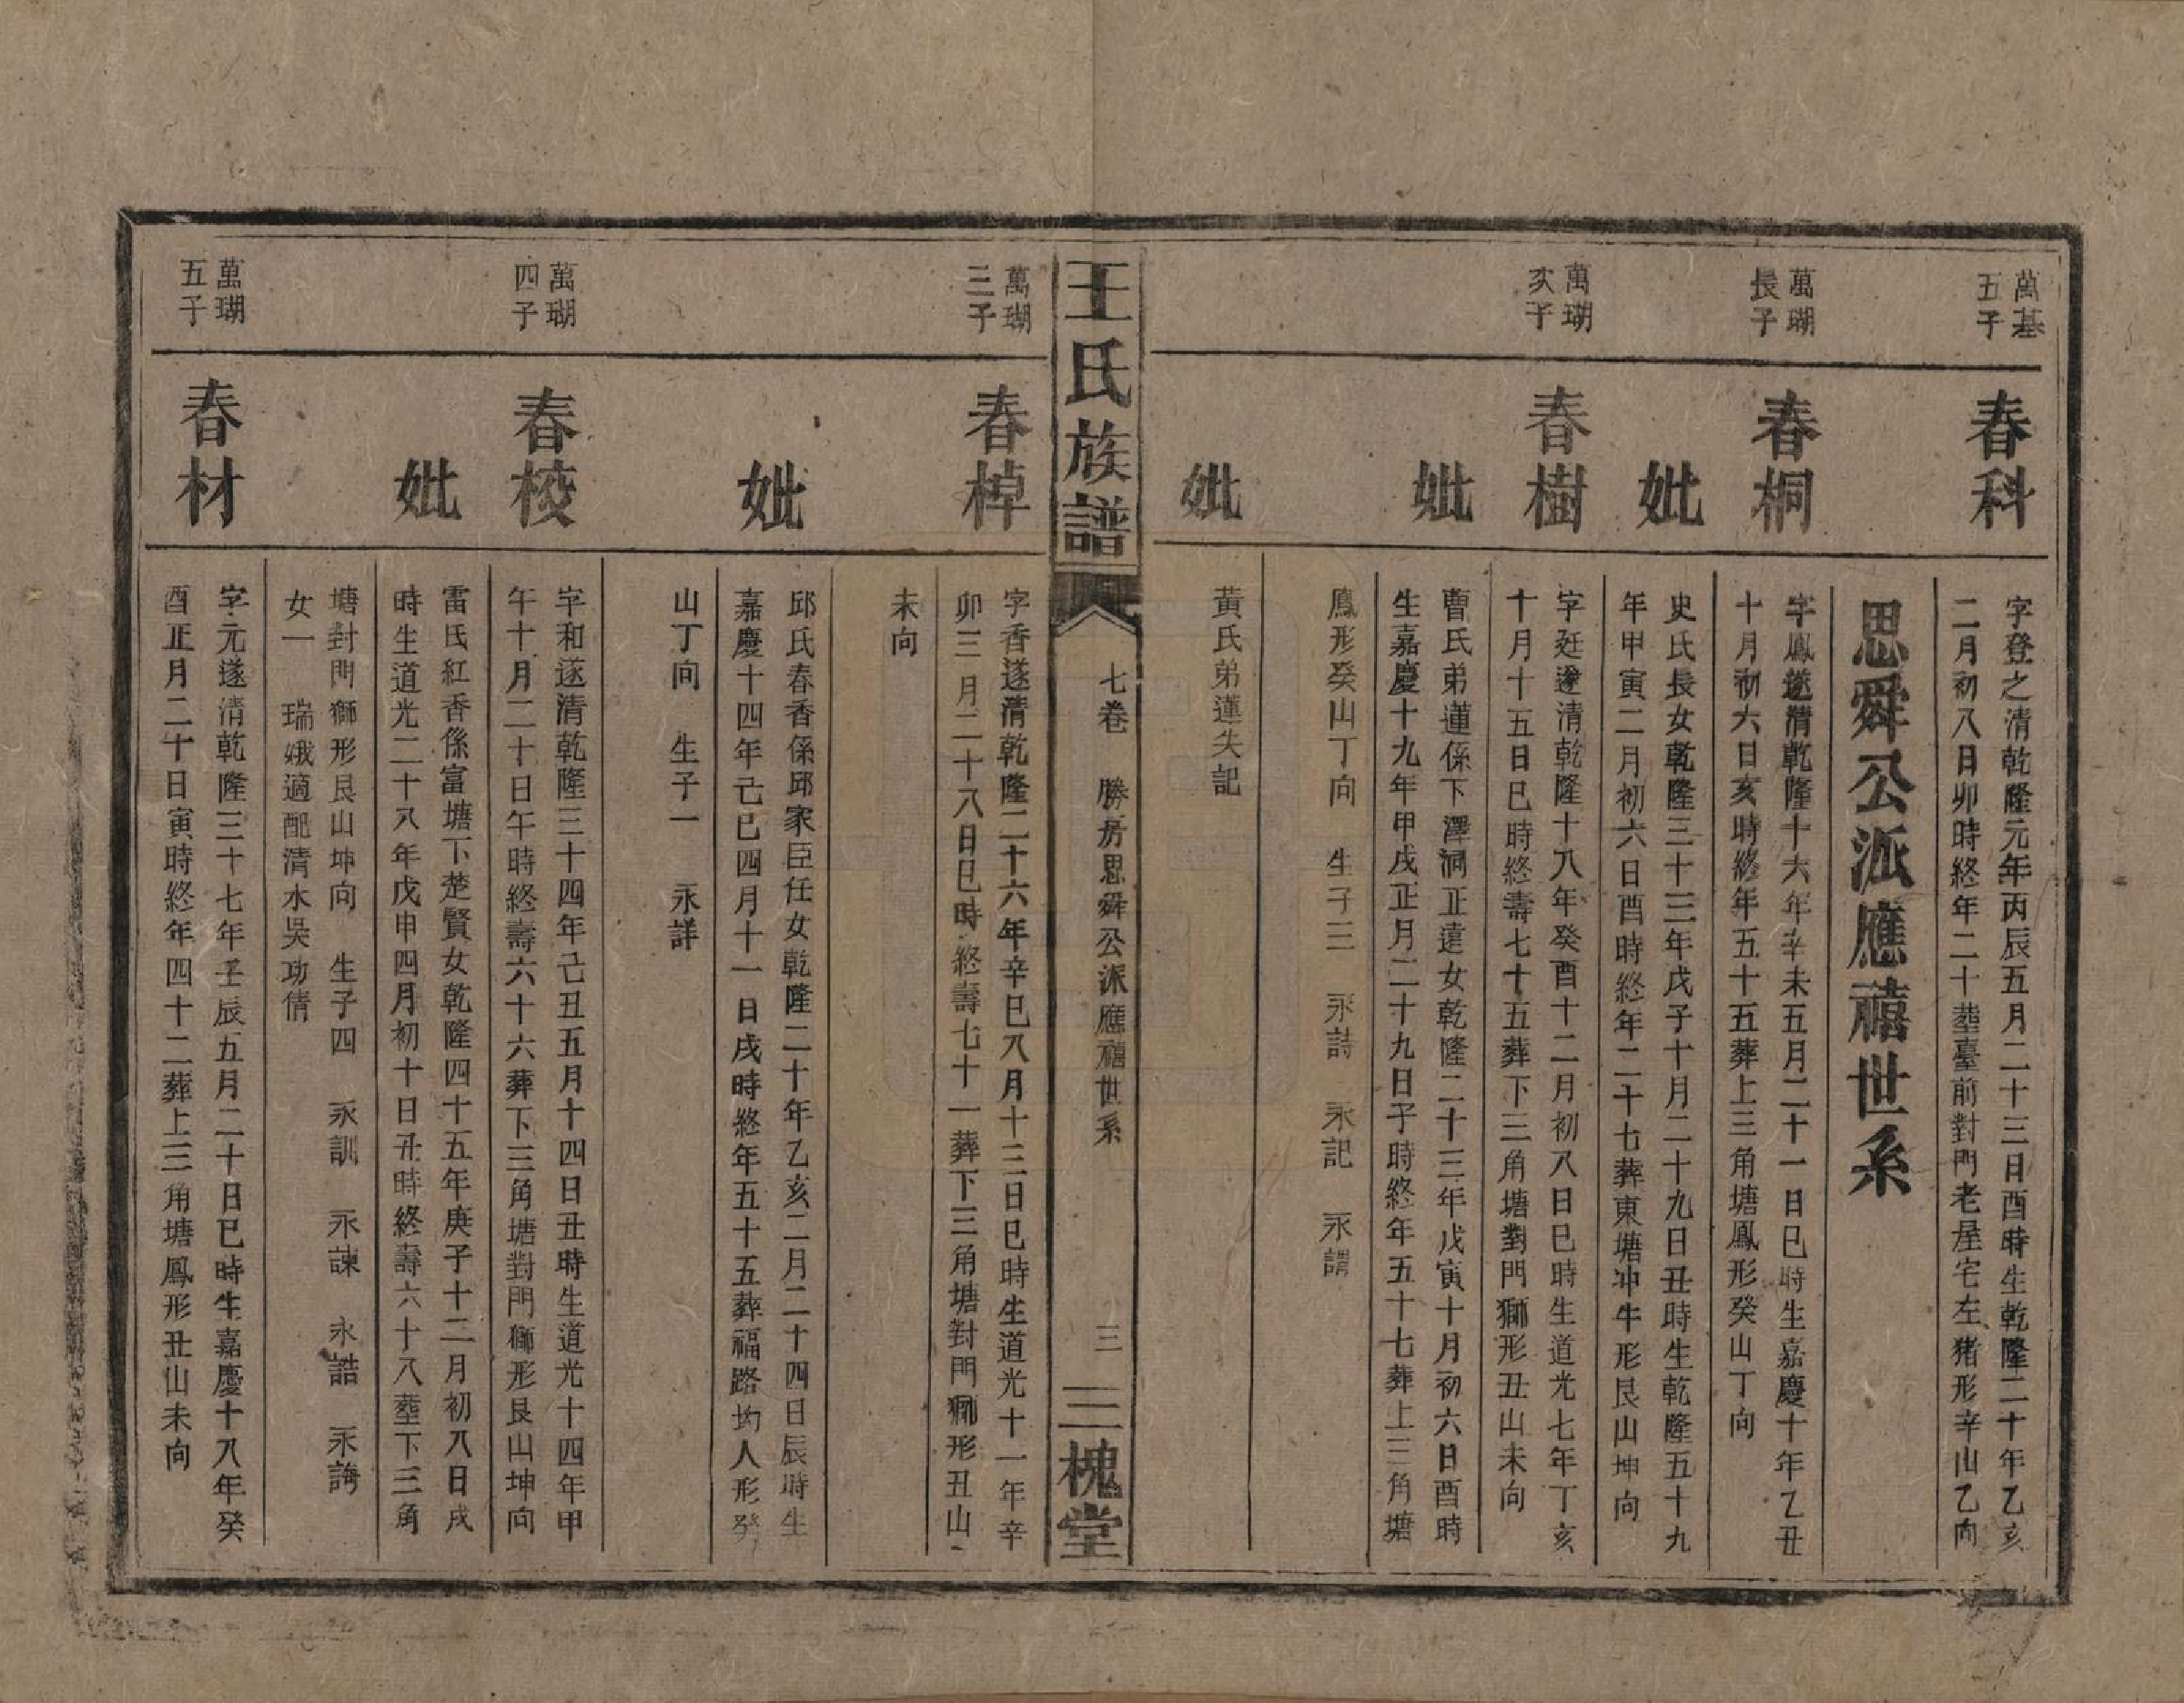 萬基
五子
春科
字登之清乾隆元年丙辰五月二十三日酉時生乾隆二十年乙亥
二月初八日卯時終年二十塟臺前對門老屋宅左豬形辛山乙向
思舜公派應禧世系
萬瑚
長子
春桐
字鳳遂清乾隆十六年辛未五月二十一日巳時生嘉慶十年乙丑
十月初六日亥時終年五十五葬上三角塘鳳形癸山丁向
妣
史氏長女乾隆三十三年戊子十月二十九日丑時生乾隆五十九
年甲寅二月初六日酉時終年二十七葬東塘冲牛形艮山坤向
萬瑚
次子
春樹
字廷遂清乾隆十八年癸酉十二月初八日巳時生道光七年丁亥
十月十五日巳時終壽七十五葬下三角塘對門獅形丑山未向
妣
曹氏弟蓮係下澤洞正達女乾隆二十三年戊寅十月初六日酉時
生嘉慶十九年甲戌正月二十九日子時終年五十七葬上三角塘
鳳形癸山丁向 生子三 永詩 永記 永謂
妣
黄氏弟蓮失記
王氏族譜
七卷 勝房思舜公派應禧世系
三
三槐堂
萬瑚
三子
春棹
字香遂清乾隆二十六年辛巳八月十三日巳時生道光十一年辛
卯三月二十八日巳時終壽七十一葬下三角塘對門獅形丑山
未向
妣
邱氏春香係邱家臣任女乾隆二十年乙亥二月二十四日辰時生
嘉慶十四年己巳四月十一日戌時終年五十五葬福路坳人形癸
山丁向 生子一 永詳
萬瑚
四子
春校
字和遂清乾隆三十四年己丑五月十四日丑時生道光十四年甲
午十月二十日午時終壽六十六葬下三角塘對門獅形艮山坤向
妣
雷氏紅香係富塘下楚賢女乾隆四十五年庚子十二月初八日戌
時生道光二十八年戊申四月初十日丑時終壽六十八塟下三角
塘對門獅形艮山坤向 生子四 永訓 永諫 永誥 永誨
女一 瑞娥適配清水吳功倩
萬瑚
五子
春材
字元遂清乾隆三十七年壬辰五月二十日巳時生嘉慶十八年癸
酉正月二十日寅時終年四十二葬上三角塘鳳形丑山未向